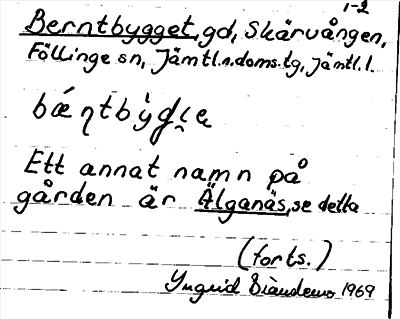 1-2
Berntbygget, gd, Skärvången,
Föllinge sn, Jämtl.n.doms.tg, Jämtl.l.
Ett annat namn på
gården är Älganäs, se detta
(forts.)
Yngrid 1969